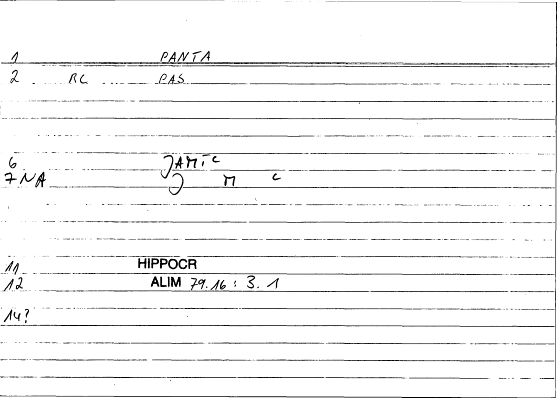 1 PANTA
2 RC PAS
6 JAMIC
7 NA J M C
11 HIPPOCR
12 ALIM 79.16 : 3. 1
14?